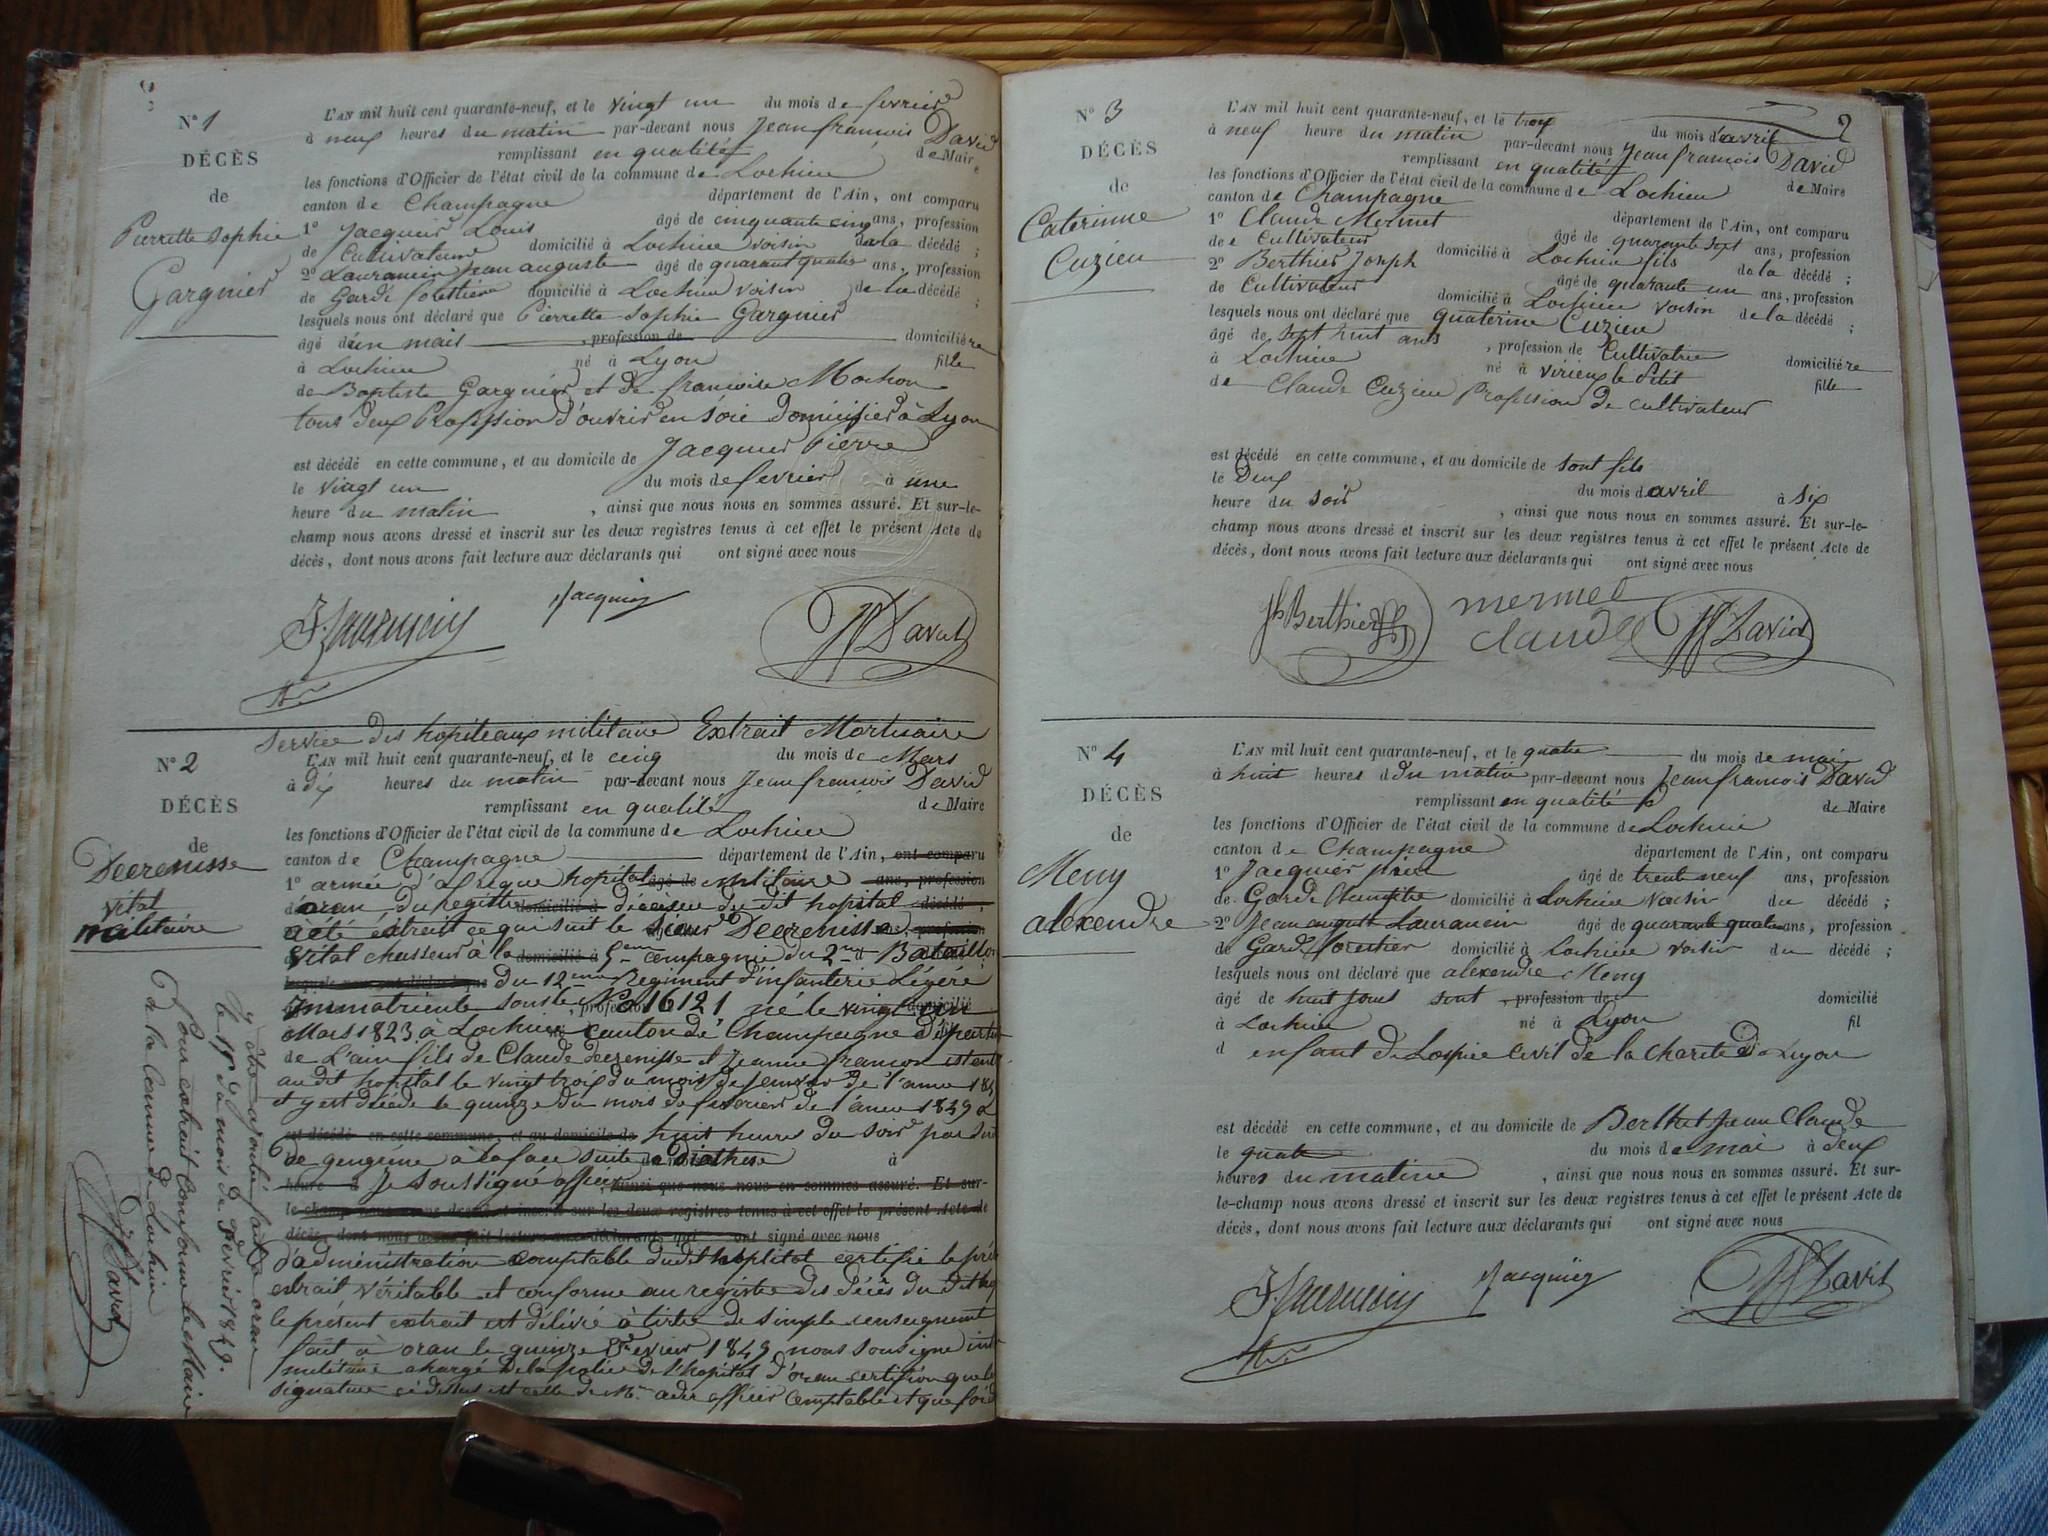 N° 1
DÉCÈS
de
Pierrette Sophie
Gargnier
L'AN mil huit cent quarante-neuf, et le vingt un du mois de fevrier
à neuf heures du matin par-devant nous Jean françois David
remplissant en qualité de Maire
les fonctions d'Officier de l'état civil de la commune de Lochieu
canton de Champagne département de l'Ain, ont comparu
1° Jacquier Louis âgé de cinquante cinq ans, profession
de Cultivateur domicilié à Lochieu voisin de la décédé ;
2° Lauramcin jean auguste âgé de quarant quatre ans, profession
de Garde forestier domicilié à Lochieu voisin de la décédé ;
lesquels nous ont déclaré que Pierrette Sophie Gargnier
âgé d'un mois , profession de domicilié re
à Lochieu né à Lyon fille
de Baptiste Gargnier et de francoise Mochon
tous deux Profession d'ouvrier en soie Domicilier à Lyon
est décédé en cette commune, et au domicile de Jacquier Pierre
le vingt un du mois de fevrier à une
heure du matin , ainsi que nous nous en sommes assuré. Et sur-le-
champ nous avons dressé et inscrit sur les deux registres tenus à cet effet le présent Acte de
décès, dont nous avons fait lecture aux déclarants qui ont signé avec nous
Jacquier
David
N° 2
DÉCÈS
de
Decrenisse
vital
militaire
Service des hopiteaux militaire Extrait Mortuaire
L'AN mil huit cent quarante-neuf, et le cinq du mois de Mars
à dix heures du matin par-devant nous Jean françois David
remplissant en qualité de Maire
les fonctions d'Officier de l'état civil de la commune de Lochieu
canton de Champagne département de l'Ain, ont comparu
1° armée d'afrique hopital âgé de militaire ans, profession
d'oran du registre domicilié à deceseu du dit hopital décédé ;
acté extrait ce que suit le sieur Decrenisse, profession
vital chasseur à la domicilié à 5eme compagnie du 2me Bataillon
lesquels nous ont déclaré que Du 12eme Regiment d'infanterie Légére
Immatricule sous le N° 16121 né le vingt
Mars 1823 à Lochieu canton de Champagne Depart
de L'ain fils de Claude decrenisse et Jeanne françon est entré
au dit hopital le vingt trois du mois de Janvier de l'anne
et y est décédé le quinze du mois de fevrier de l'annee 1849 a
est décédé en cette commune, et au domicile de huit heures du soir par
de gengréne à la face suite de diathese à
heure Je soussigné officier , ainsi que nous nous en sommes assuré. Et sur-
le-champ nous avons dressé et inscrit sur les deux registres tenus à cet effet le présent Acte de
décès, dont nous avons fait lecture aux déclarants qui ont signé avec nous
d'administration comptable dudit hoplitat certifie le pré
extrait véritable et conforme au registre des Décès du dit
le présent extrait est délivré à titre de simple renseignement
fait à oran le quinze Fevrier 1849 nous sousigne
militaire chargé de la police de l'hopital d'oran certifion que
signature ci dessus est celle de Mr officier Comptable et que
fait a oran
le 15 du mois de Fevrier 1849.
Pour extrait Conforme le Maire
De la Commune de Lochieu
David
2
N° 3
DÉCÈS
de
Caterinne
Cuzieu
L'AN mil huit cent quarante-neuf, et le troy du mois d'avril
à neuf heure du matin par-devant nous Jean francois David
remplissant en qualité de Maire
les fonctions d'Officier de l'état civil de la commune de Lochieu
canton de Champagne département de l'Ain, ont comparu
1° Claude Mermet âgé de quarante sept ans, profession
de Cultivateur domicilié à Lochieu fils de la décédé ;
2° Berthier Joseph âgé de quarante un ans, profession
de Cultivateur domicilié à Lochieu voisin de la décédé ;
lesquels nous ont déclaré que quaterine Cuzieu
âgé de sept huit ans , profession de Cultivatrice domicilié re
à Lochieu né à virieu le Petit fille
de Claude Cuzieu Profession de cultivateur
est décédé en cette commune, et au domicile de sont fils
le Deux du mois d'avril à six
heure du soir , ainsi que nous nous en sommes assuré. Et sur-le-
champ nous avons dressé et inscrit sur les deux registres tenus à cet effet le présent Acte de
décès, dont nous avons fait lecture aux déclarants qui ont signé avec nous
Jh Berthier
mermet
claude
David
N° 4
DÉCÈS
de
Meny
alexendre
L'AN mil huit cent quarante-neuf, et le quatre du mois de mai
à huit heures d du matin par-devant nous Jean francois David
remplissant en qualité de Maire
les fonctions d'Officier de l'état civil de la commune de Lochieu
canton de Champagne département de l'Ain, ont comparu
1° Jacquier âgé de trent neuf ans, profession
de Garde Champitre domicilié à Lochieu voisin du décédé ;
2° Jean august Laurancin âgé de quarante quatre ans, profession
de Garde forestier domicilié à Lochieu voisin du décédé ;
lesquels nous ont déclaré que alexendre Meny
âgé de huit jours sont , profession de domicilié
à Lochieu né à Lyon fil
d enfant de Lospice civil de la charité de Lyon
est décédé en cette commune, et au domicile de Berthet Jean Claude
le quatre du mois de mai à deux
heures du matine , ainsi que nous nous en sommes assuré. Et sur-
le-champ nous avons dressé et inscrit sur les deux registres tenus à cet effet le présent Acte de
décès, dont nous avons fait lecture aux déclarants qui ont signé avec nous
Jacquier
David